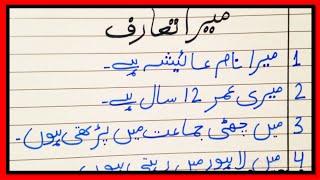 میرا تعارف
1 میرا نام عائیشہ ہے۔
2 میری عمر 12 سال ہے۔
3 میں چھٹی جماعت میں پڑھتی ہوں۔
4 میں لاہور میں رہتی ہوں